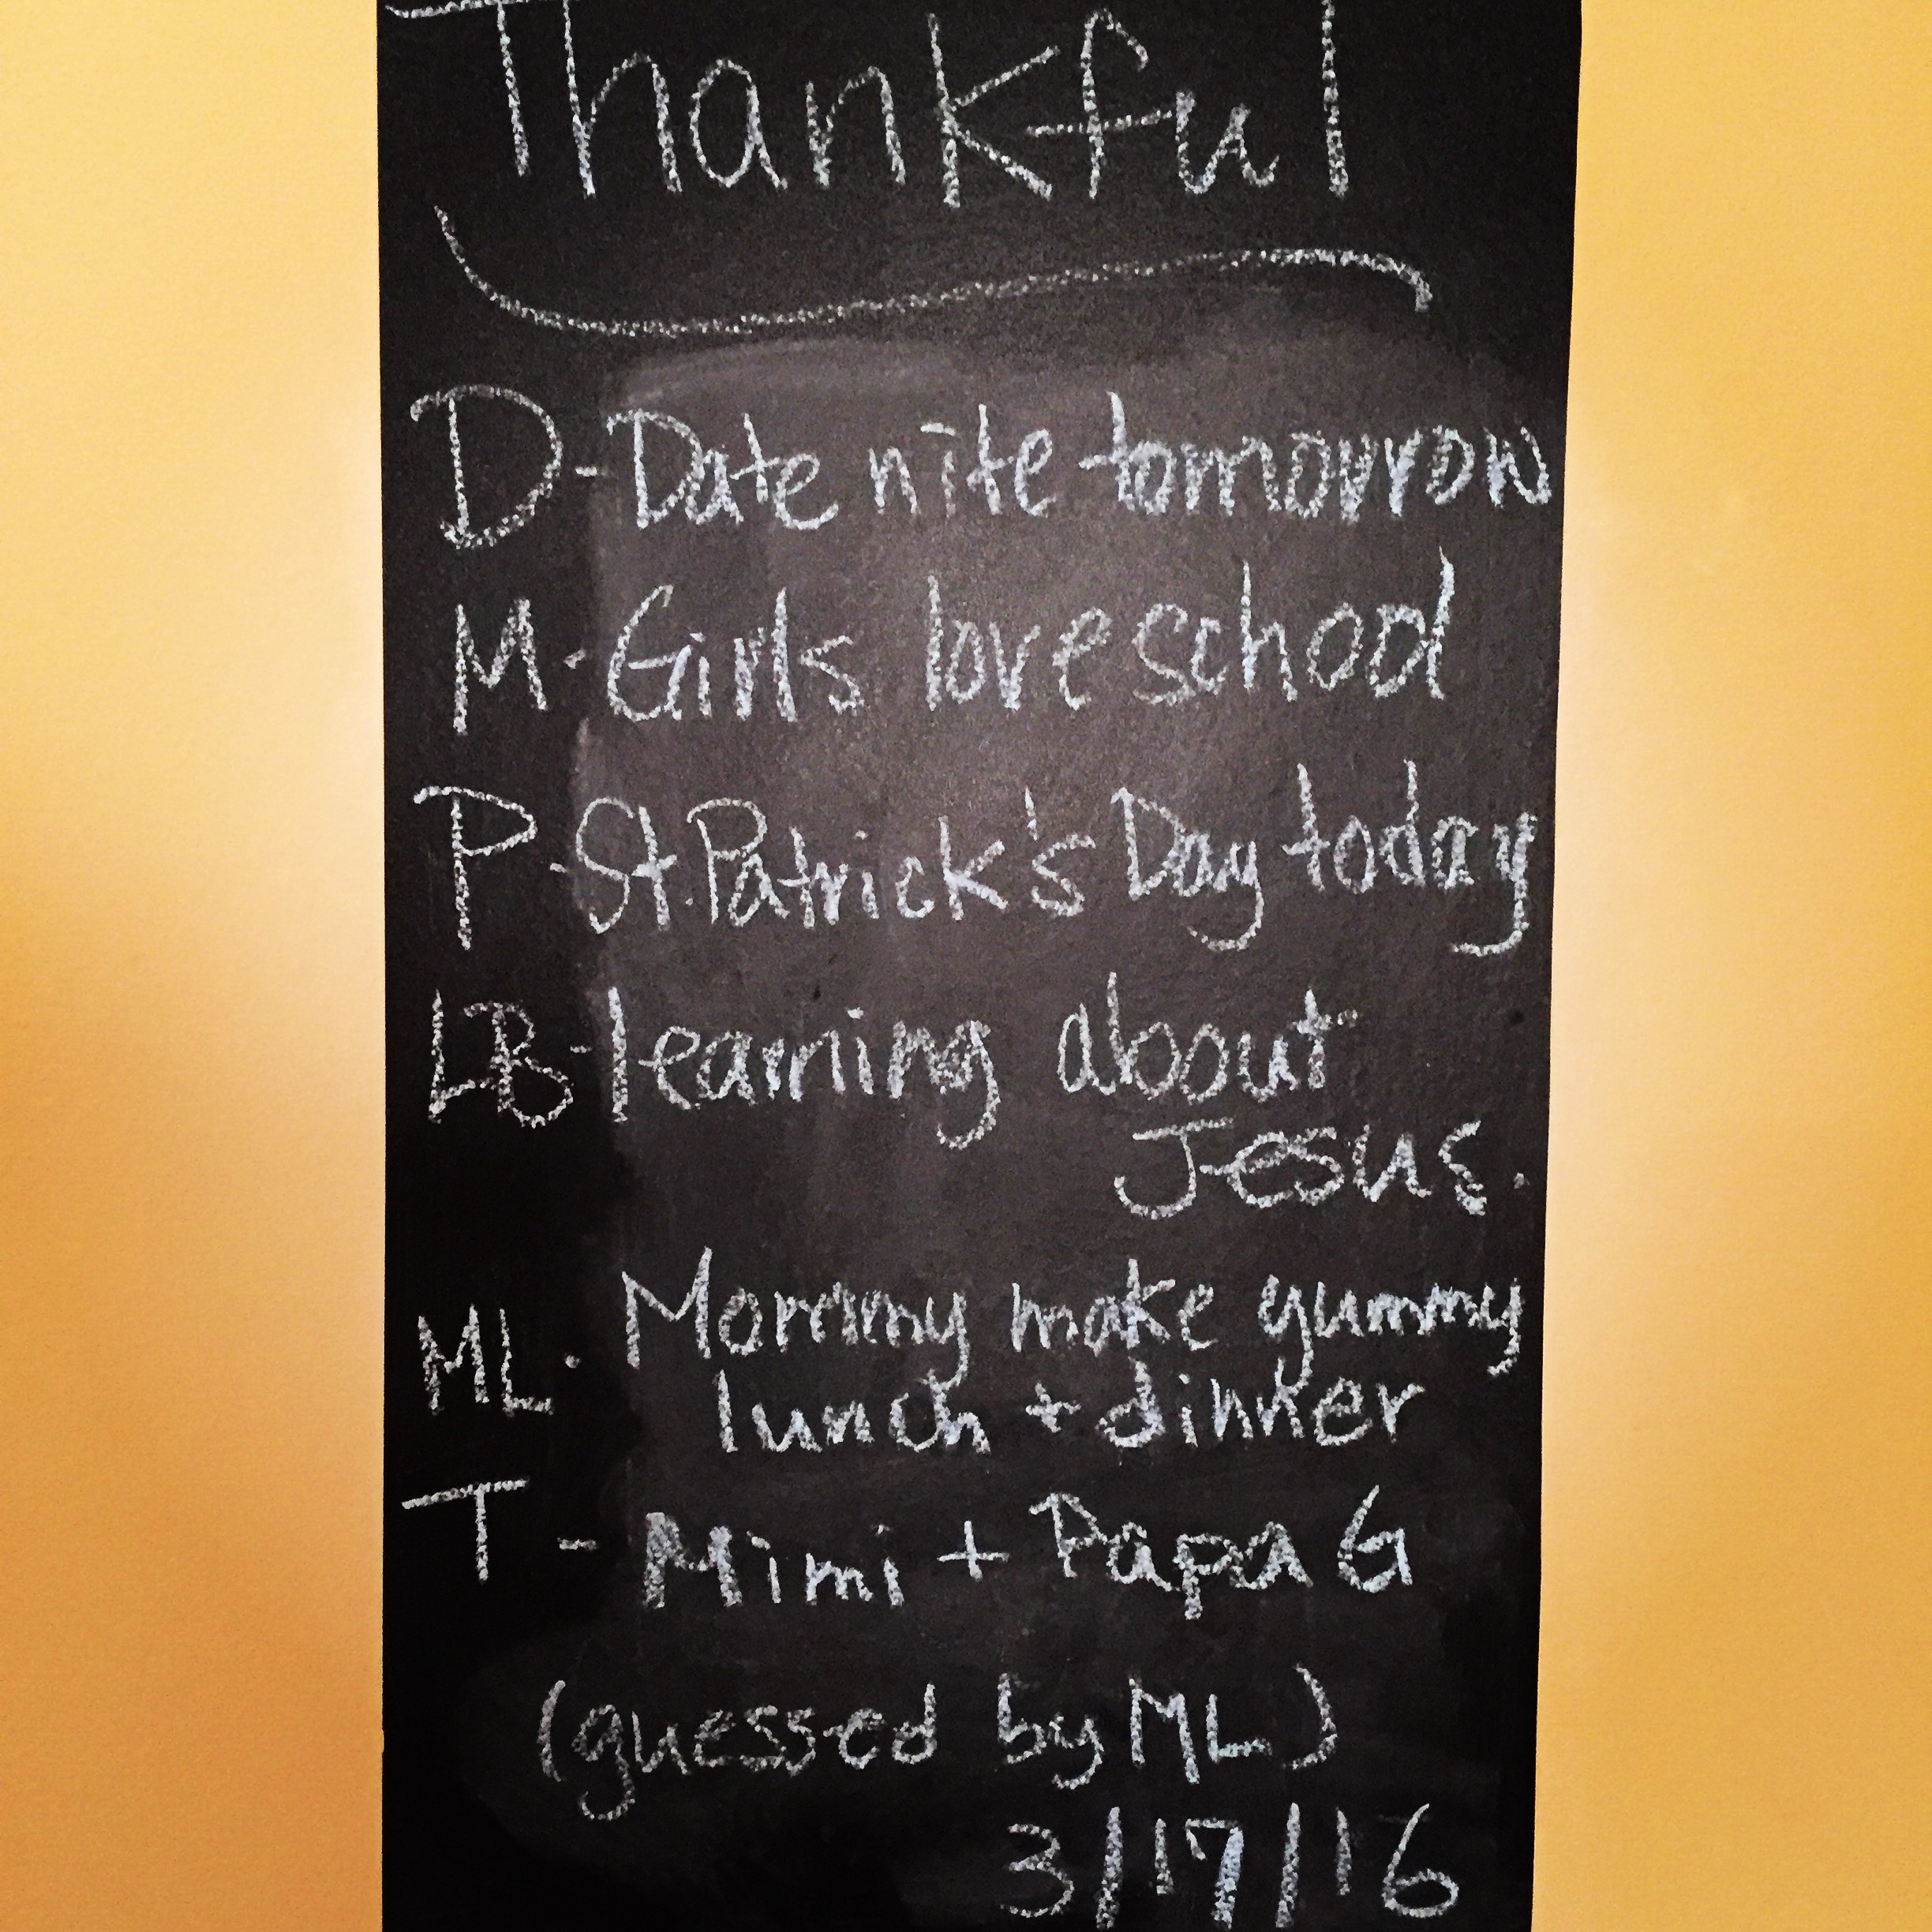 Thankful
D-Date nite tomorrow
M-Girls love school
P-St. Patrick's Day today
LB-learning about
Jesus.
ML. Mommy make yummy
lunch + dinner
T- Mimi + Papa G
(guessed by ML)
3/17/16